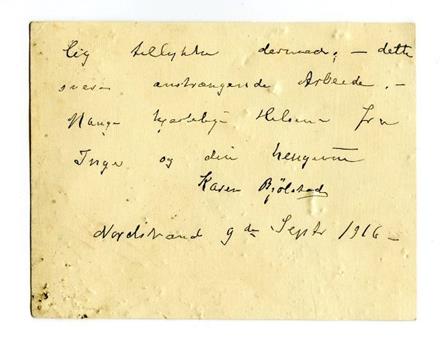 lig tillykke dermed; – dette
svære anstrængende Arbeide. –
Mange hjertelige Hilsener fra
Inger og din hengivne
Karen Bjölstad
Nordstrand 9de Septr 1916 –